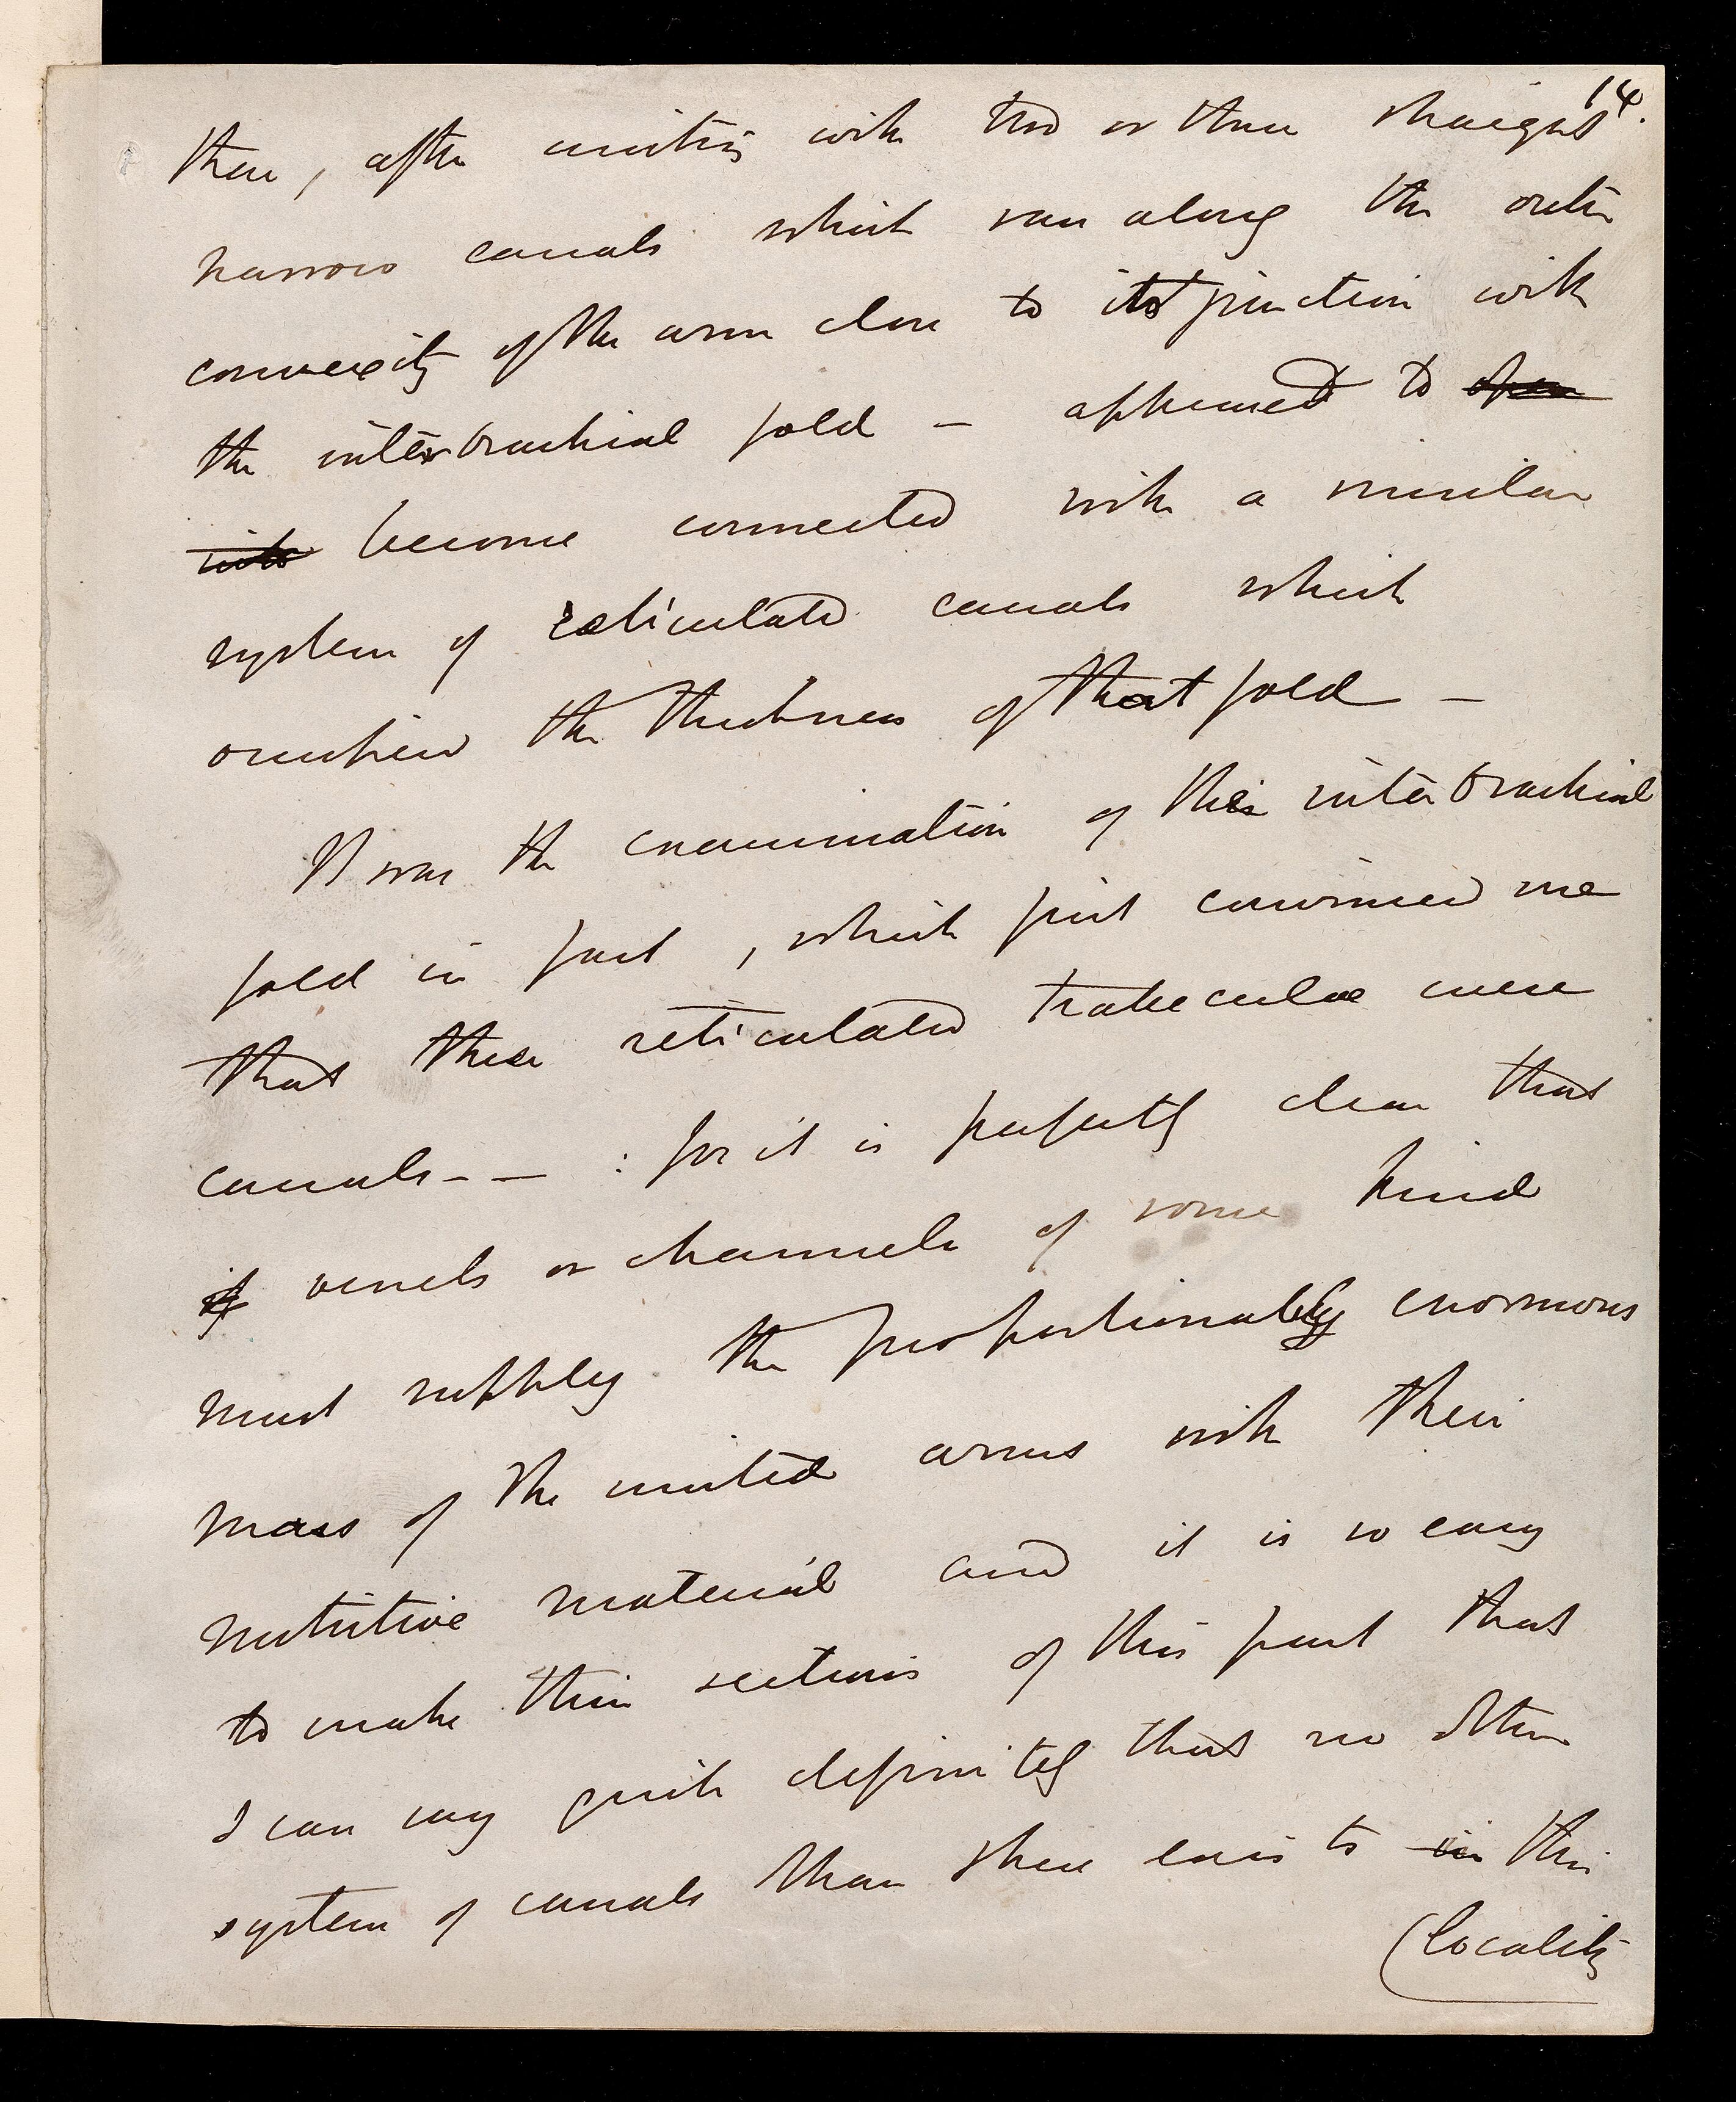 14.
these, after uniting with two or three straight
narrow canals which ran along the outer
convexity of the arm close to its junction with
the interbrachial fold — appeared to open
into become connected with a similar
system of reticulated canals which
occupied the thickness of that fold —
It was the examination of this interbrachial
fold in fact, which first convinced me
that these reticulated trabeculae were
canals - — : for it is perfectly clear that
if vessels or channels of some kind
must supply the proportionably enormous
mass of the united arms with their
nutritive material and it is so easy
to make thin sections of this part that
I can say quite definitely that no other
system of canals than these exists in this
(locality